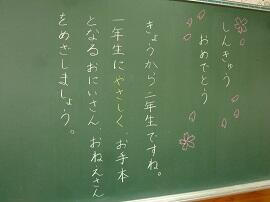 しんきゅう
おめでとう
きょうから二年生ですね。
一年生にやさしく、お手本
となるおにいさん、おねえさん
をめざしましょう。